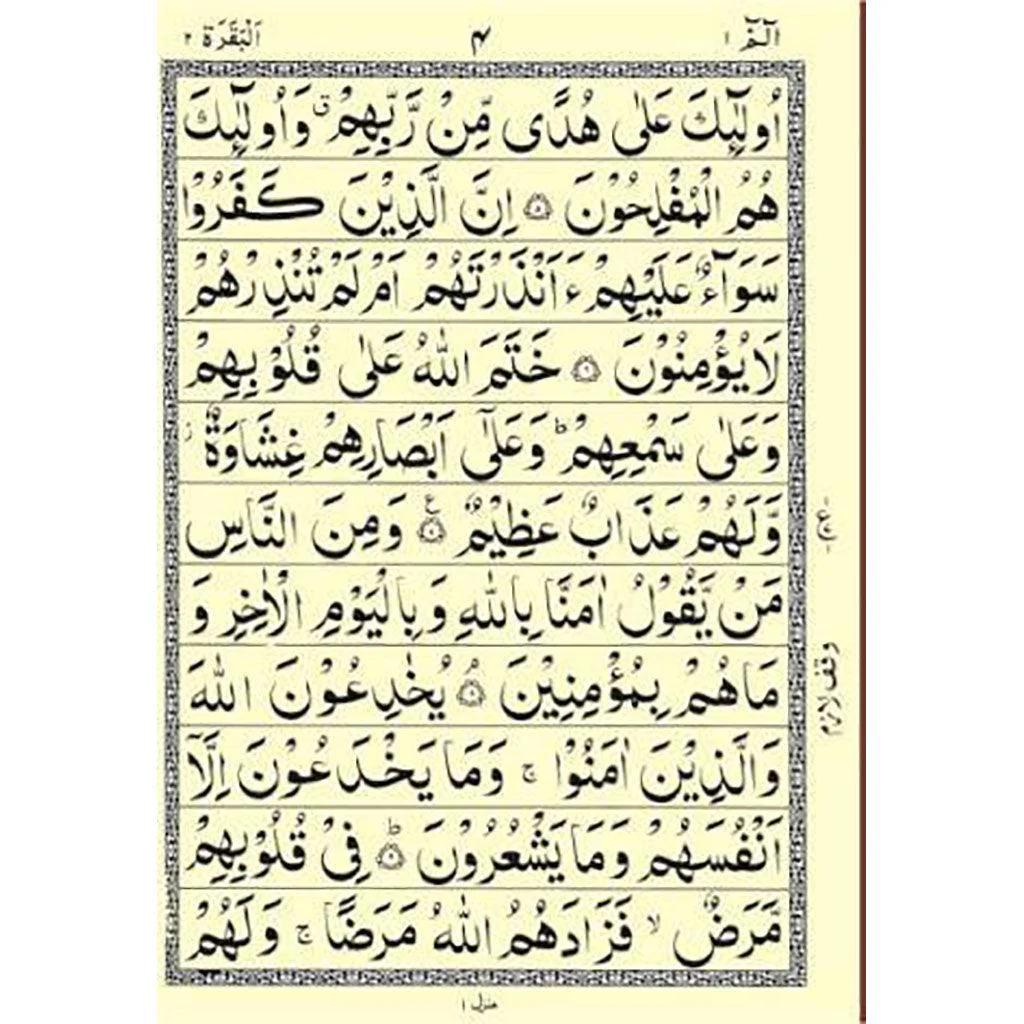 الٓمّٓ ۱
۴
اَلْبَقَرَة ۲
اُولٰٓئِكَ عَلٰى هُدًى مِّنْ رَّبِّهِمْ ۗ وَاُولٰٓئِكَ
هُمُ الْمُفْلِحُوْنَ ۝۵ اِنَّ الَّذِيْنَ كَفَرُوْا
سَوَآءٌ عَلَيْهِمْ ءَاَنْذَرْتَهُمْ اَمْ لَمْ تُنْذِرْهُمْ
لَا يُؤْمِنُوْنَ ۝۶ خَتَمَ اللّٰهُ عَلٰى قُلُوْبِهِمْ
وَعَلٰى سَمْعِهِمْ ؕ وَعَلٰٓى اَبْصَارِهِمْ غِشَاوَةٌ ز
وَّلَهُمْ عَذَابٌ عَظِيْمٌ ۝۷ ع وَمِنَ النَّاسِ
مَنْ يَّقُوْلُ اٰمَنَّا بِاللّٰهِ وَبِالْيَوْمِ الْاٰخِرِ وَ
مَا هُمْ بِمُؤْمِنِيْنَ ۝۸ ۘ يُخٰدِعُوْنَ اللّٰهَ
وَالَّذِيْنَ اٰمَنُوْا ۚ وَمَا يَخْدَعُوْنَ اِلَّآ
اَنْفُسَهُمْ وَمَا يَشْعُرُوْنَ ۝۹ ؕ فِىْ قُلُوْبِهِمْ
مَّرَضٌ ۙ فَزَادَهُمُ اللّٰهُ مَرَضًا ۚ وَلَهُمْ
وقف لازم
منزل ۱